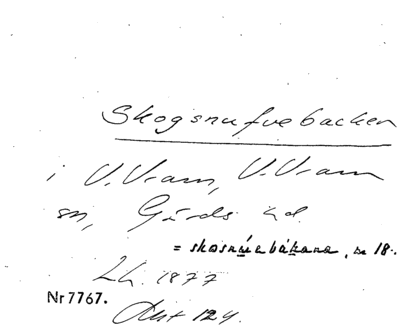 Skogsnufvebacken
i V. Vram, V. Vram
sn, Gärds hd.
= skosnúebákana, se 18.
Lh. 1877
Nr 7767.
Akt 124.